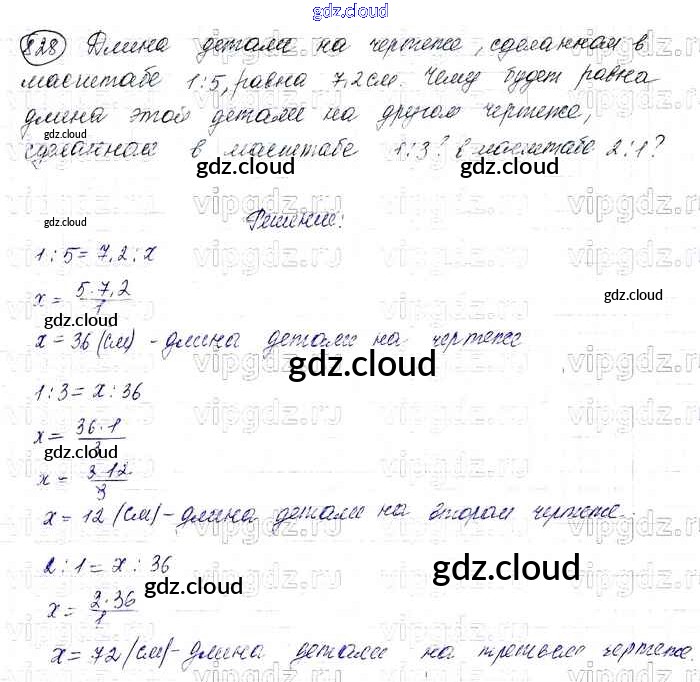 gdz.cloud
828 Длина детали на чертеже, сделанном в
масштабе 1:5, равна 7,2см. Чему будет равна
длина этой детали на другом чертеже,
gdz.cloud
сделанном в масштабе 1:3? в масштабе 2:1?
gdz.cloud
gdz.cloud
vipgdz.ru
Решение:
1:5=7,2:x
x= 5·7,2
1
gdz.cloud
gdz.cloud
x=36(см) - длина детали на чертеже
gdz.cloud
1:3=x:36
x= 36·1
3
gdz.cloud
x= 3·12
3
x=12(см)-длина детали на втором чертеже.
2:1=x:36
gdz.cloud
gdz.cloud
x= 2·36
1
x=72(см)-длина детали на третьем чертеже